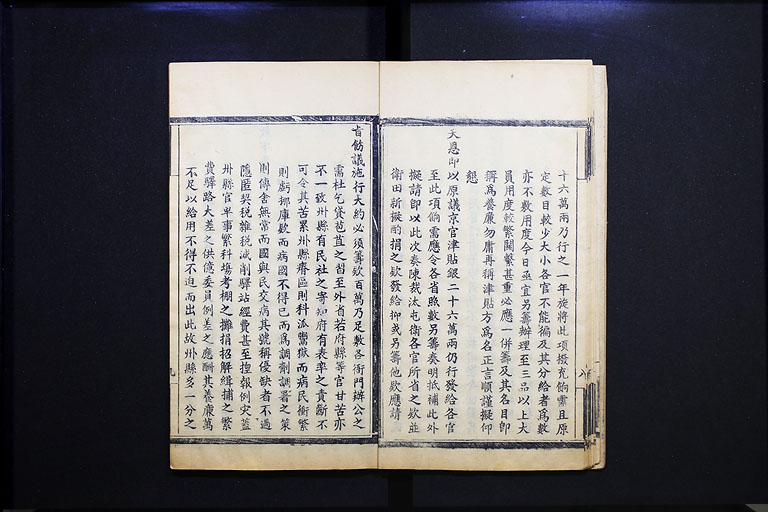 十六萬兩乃行之一年旋將此項撥充餉需且原
定數目較少大小各官不能徧及其分給者為數
亦不敷用度今日亟宜另籌辦理至三品以上大
員用度較繁關繫甚重必應一併籌及其名目即
稱為養廉勿庸再稱津貼方為名正言順謹擬仰
懇
天恩即以原議京官津貼銀二十六萬兩仍行發給各官
至此項餉需應令各省照數另籌奏明抵補此外
擬請即以此次奏陳裁汰屯衛各官所省之欵並
衛田新擬酌捐之欵發給抑或另籌他欵應請
旨飭議施行大約必須籌欵百萬乃足敷各衙門辦公之
需杜乞貸苞苴之習至外省若府縣等官甘苦亦
不一致州縣有民社之寄知府有表率之責斷不
可令其苦累州縣瘠區則科派鬻獄而病民衝繁
則虧挪庫欵而病國不得已而為調劑調署之策
則傳舍無常而國與民交病其號稱優缺者不過
隱匿契税雜税減削驛站經費甚至揑報例災蓋
州縣官卑事繁科塲考棚之攤捐招解緝捕之繁
費驛路大差之供億委員例差之應酬其養廉萬
不足以給用不得不迫而出此故州縣多一分之